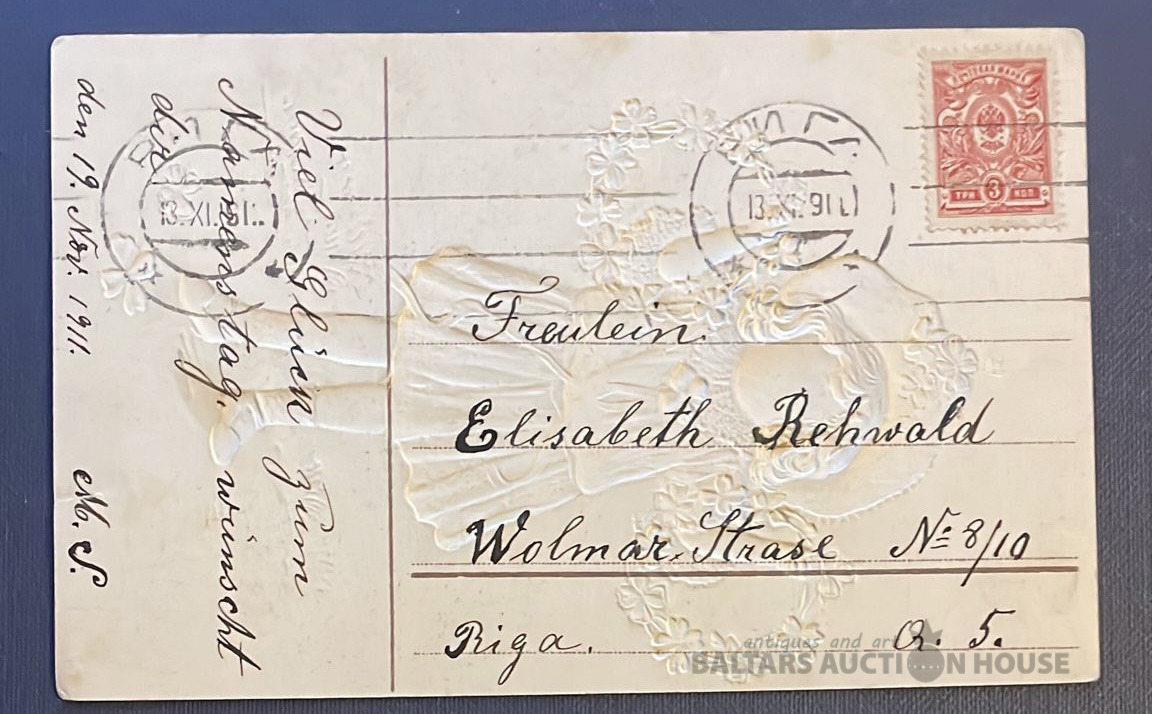 Viel Glück zum
Namenstag. wünscht
dir
den 19. Nov. 1911. M. S.
ПОЧТОВАЯ МАРКА
ТРИ 3 КОП.
РИГА
13.XI.911
13.XI.911
Freulein.
Elisabeth Rehwald
Wolmar. Strase № 8/10
Riga. Q. 5.
antiques and art
BALTARS AUCTION HOUSE